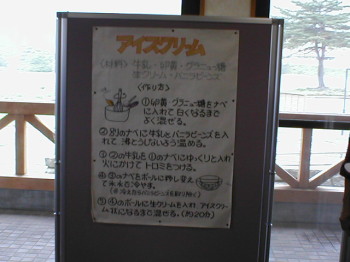 アイスクリーム
(材料)牛乳・卵黄・グラニュー糖
生クリーム・バニラビーンズ
<作り方>
①卵黄・グラニュー糖をナベに
入れて白くなるまで
よく混ぜる。
②別のナベに牛乳とバニラビーンズを入
れて沸とうしないよう温める。
③②の牛乳を①のナベにゆっくりと入れ
火にかけてトロミをつける。
④③のナベをボールに移し変え
て氷水で冷やす。
⑤④のボールに生クリームを入れ、アイスクリー
ム状になるまで混ぜる。(約20分)